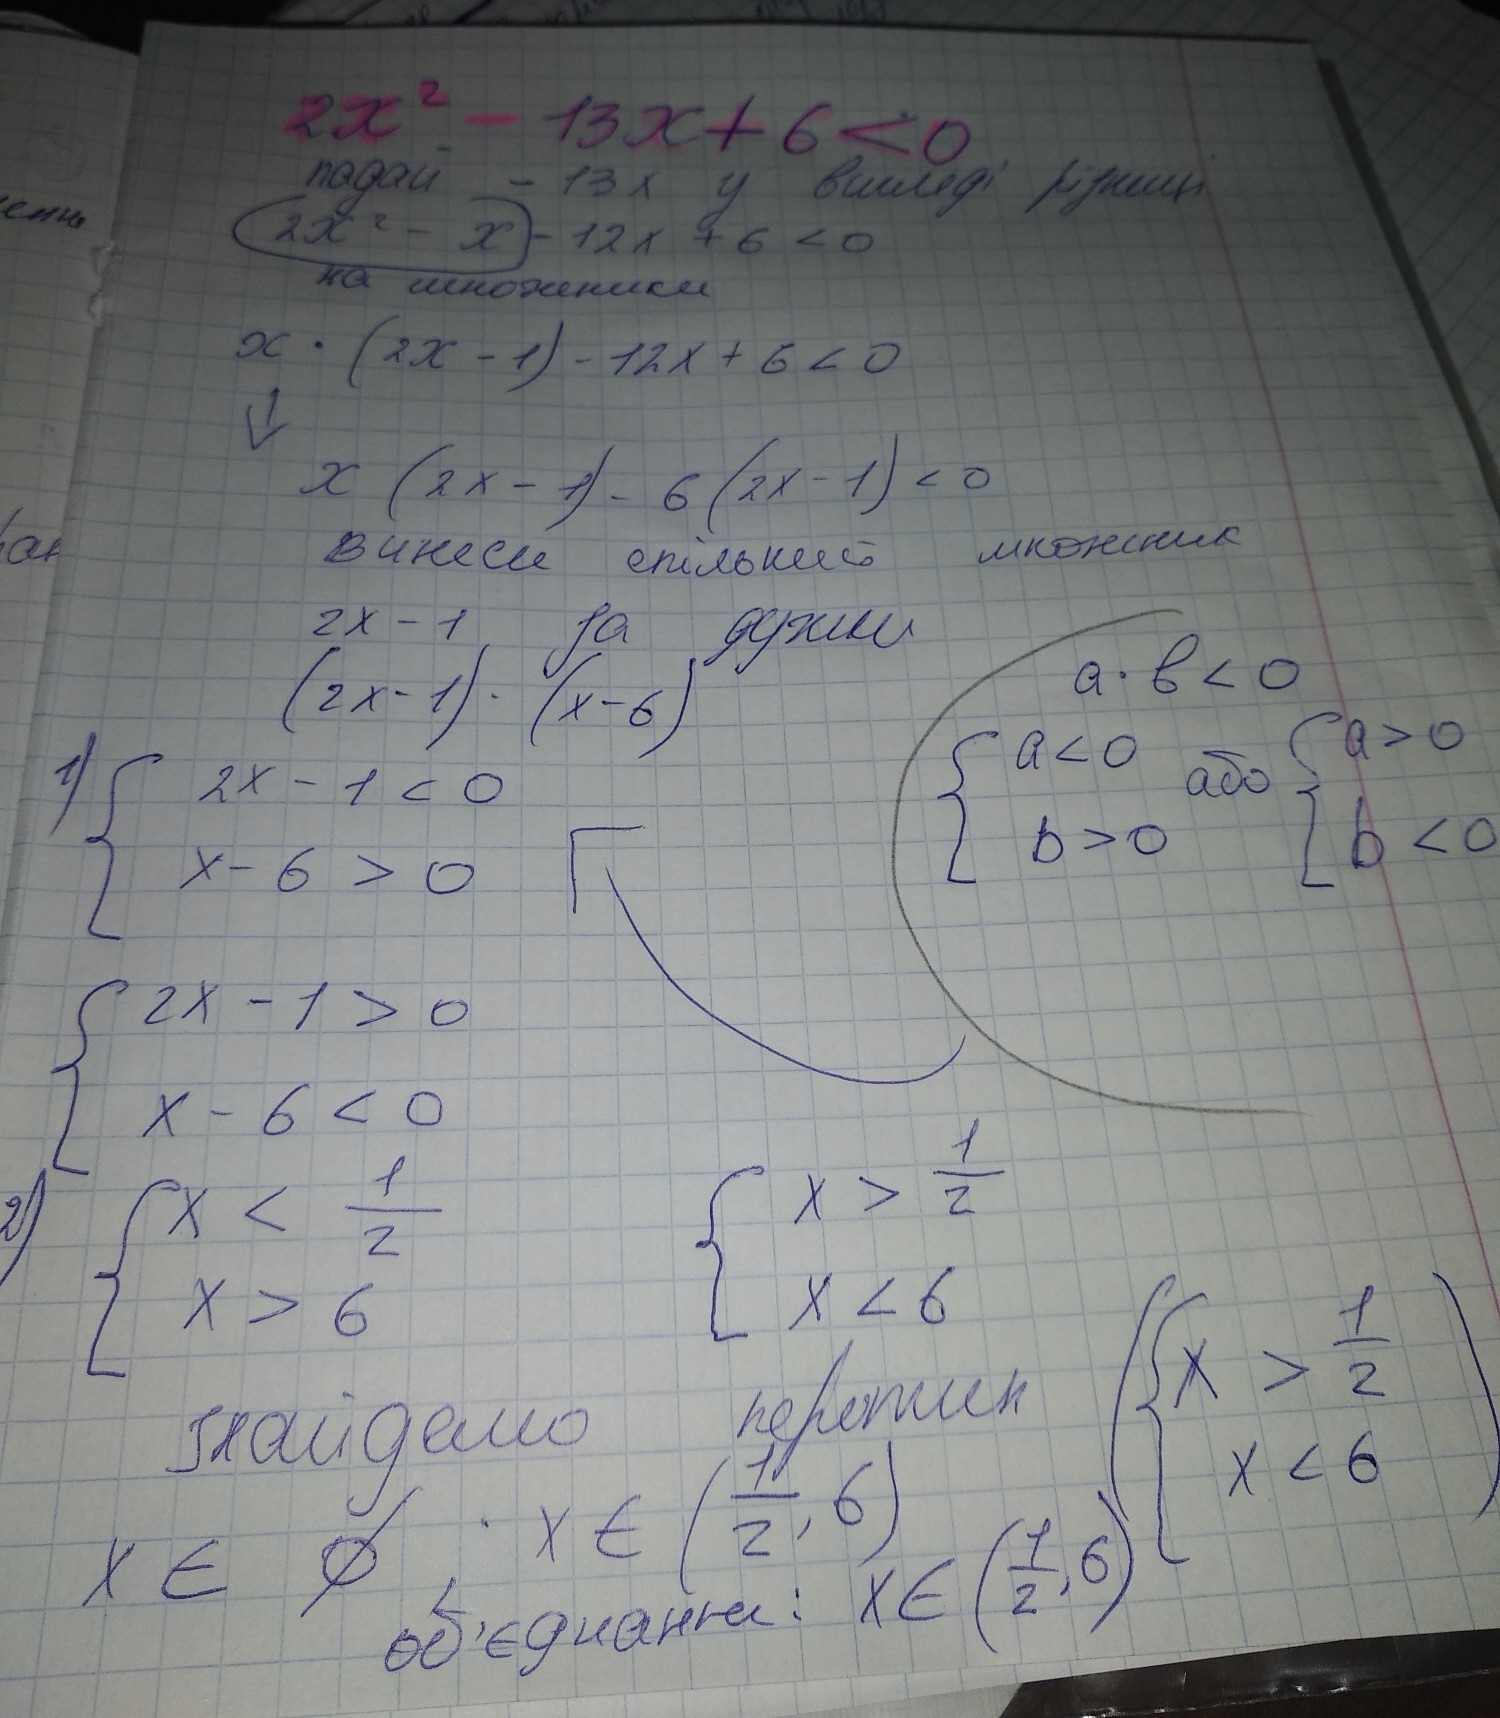 2x² - 13x + 6 < 0
подай - 13x у вигляді різниці
2x² - x - 12x + 6 < 0
на множники
x · (2x - 1) - 12x + 6 < 0
x (2x - 1) - 6 (2x - 1) < 0
винеси спільний множник
2x - 1 за дужки
(2x - 1) · (x - 6)
a · b < 0
{ a < 0 або { a > 0
b > 0 b < 0
1) { 2x - 1 < 0
x - 6 > 0
{ 2x - 1 > 0
x - 6 < 0
2) { x < 1/2 { x > 1/2
x > 6 x < 6
знайдемо перетин ( { x > 1/2
x < 6 )
x ∈ ∅, x ∈ (1/2, 6)
об'єднання: x ∈ (1/2, 6)